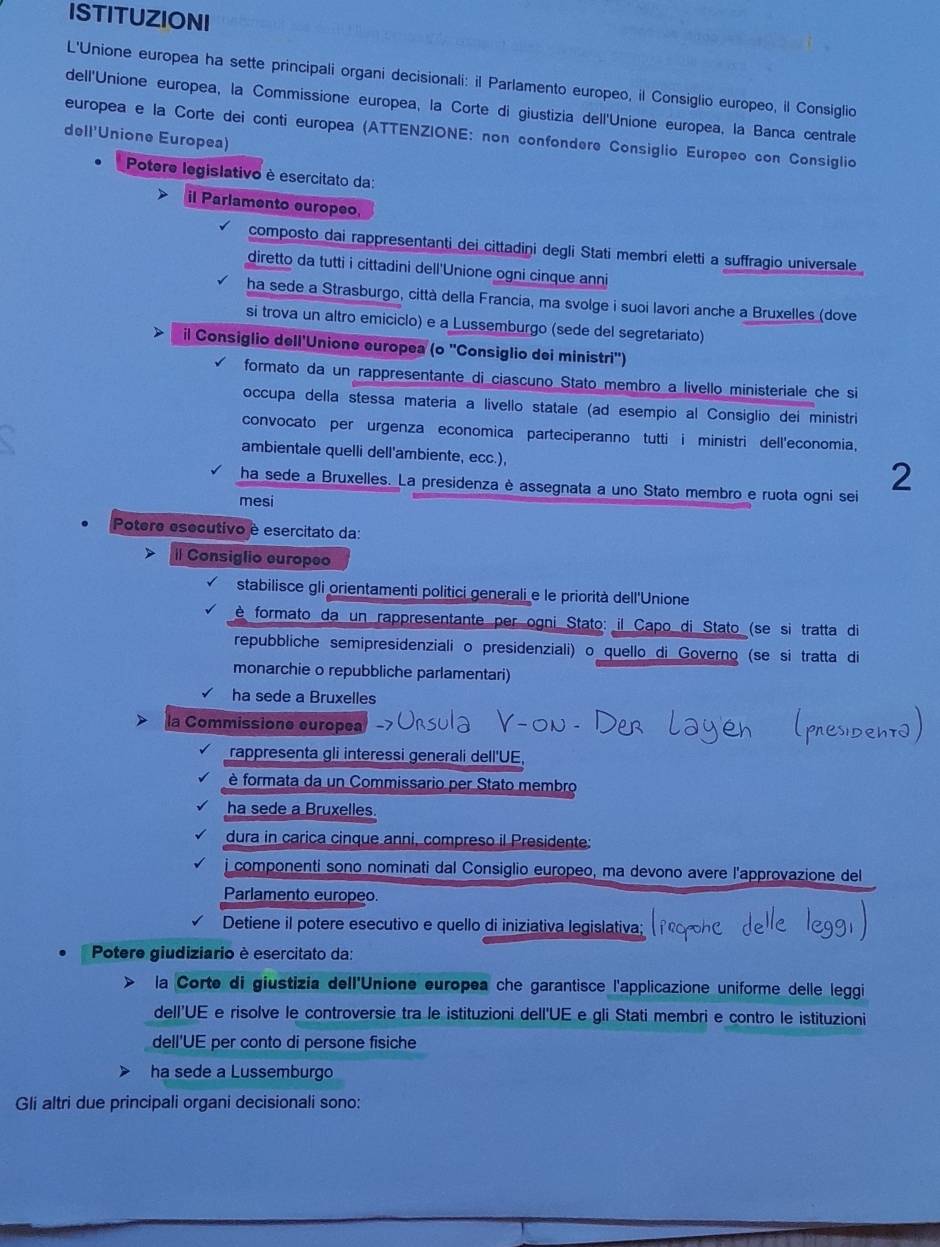 ISTITUZIONI
L'Unione europea ha sette principali organi decisionali: il Parlamento europeo, il Consiglio europeo, il Consiglio
dell'Unione europea, la Commissione europea, la Corte di giustizia dell'Unione europea, la Banca centrale
europea e la Corte dei conti europea (ATTENZIONE: non confondere Consiglio Europeo con Consiglio
dell'Unione Europea)
• Potere legislativo è esercitato da:
➢ il Parlamento europeo,
✓ composto dai rappresentanti dei cittadini degli Stati membri eletti a suffragio universale
diretto da tutti i cittadini dell'Unione ogni cinque anni
✓ ha sede a Strasburgo, città della Francia, ma svolge i suoi lavori anche a Bruxelles (dove
si trova un altro emiciclo) e a Lussemburgo (sede del segretariato)
➢ il Consiglio dell'Unione europea (o "Consiglio dei ministri")
✓ formato da un rappresentante di ciascuno Stato membro a livello ministeriale che si
occupa della stessa materia a livello statale (ad esempio al Consiglio dei ministri
convocato per urgenza economica parteciperanno tutti i ministri dell'economia,
ambientale quelli dell'ambiente, ecc.),
✓ ha sede a Bruxelles. La presidenza è assegnata a uno Stato membro e ruota ogni sei
mesi
2
• Potere esecutivo è esercitato da:
➢ il Consiglio europeo
✓ stabilisce gli orientamenti politici generali e le priorità dell'Unione
✓ è formato da un rappresentante per ogni Stato: il Capo di Stato (se si tratta di
repubbliche semipresidenziali o presidenziali) o quello di Governo (se si tratta di
monarchie o repubbliche parlamentari)
✓ ha sede a Bruxelles
➢ la Commissione europea -> Ursula V-ON-Der Layen (presidenta)
✓ rappresenta gli interessi generali dell'UE,
✓ è formata da un Commissario per Stato membro
✓ ha sede a Bruxelles.
✓ dura in carica cinque anni, compreso il Presidente;
✓ i componenti sono nominati dal Consiglio europeo, ma devono avere l'approvazione del
Parlamento europeo.
✓ Detiene il potere esecutivo e quello di iniziativa legislativa; (propone delle leggi)
• Potere giudiziario è esercitato da:
➢ la Corte di giustizia dell'Unione europea che garantisce l'applicazione uniforme delle leggi
dell'UE e risolve le controversie tra le istituzioni dell'UE e gli Stati membri e contro le istituzioni
dell'UE per conto di persone fisiche
➢ ha sede a Lussemburgo
Gli altri due principali organi decisionali sono: